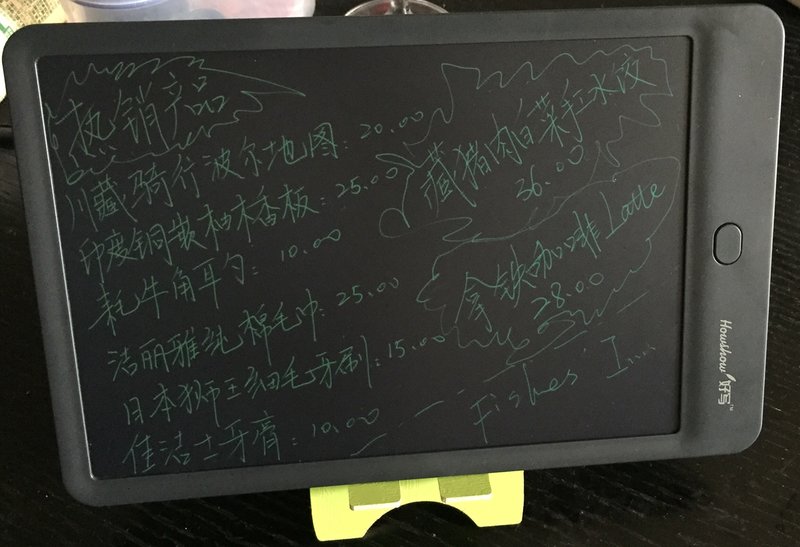 热销产品
川藏骑行波尔地图:20.00
印度铜嵌柚木香板:25.00
牦牛角耳勺:10.00
洁丽雅纯棉毛巾:25.00
日本狮王细毛牙刷:15.00
佳洁士牙膏:10.00
藏猪肉白菜手工水饺
36.00
拿铁咖啡Latte
28.00
Fishes' Inn
Howshow 好写